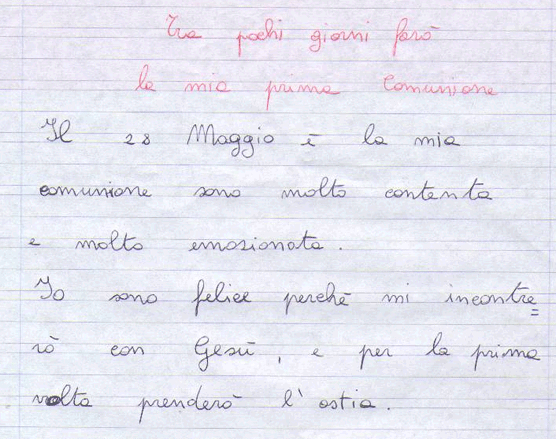 Tra pochi giorni farò
la mia prima Comunione
Il 28 Maggio è la mia
comunione sono molto contenta
e molto emozionata.
Io sono felice perchè mi incontre=
rò con Gesù, e per la prima
volta prenderò l'ostia.